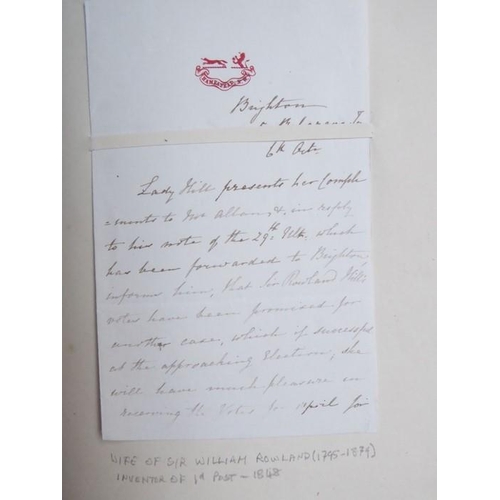 HAMPSTEAD. N.W.
Brighton
6th Octr
Lady Hill presents her Compli
=ments to Mr Allan, &, in reply
to his note of the 29th Ult. which
has been forwarded to Brighton
informs him, that Sir Rowland Hill's
votes have been promised for
another case, which if successful
at the approaching Election, she
will have much pleasure in
reserving the Votes for April for
WIFE OF SIR WILLIAM ROWLAND (1795-1879)
INVENTOR OF 1d POST - 1848